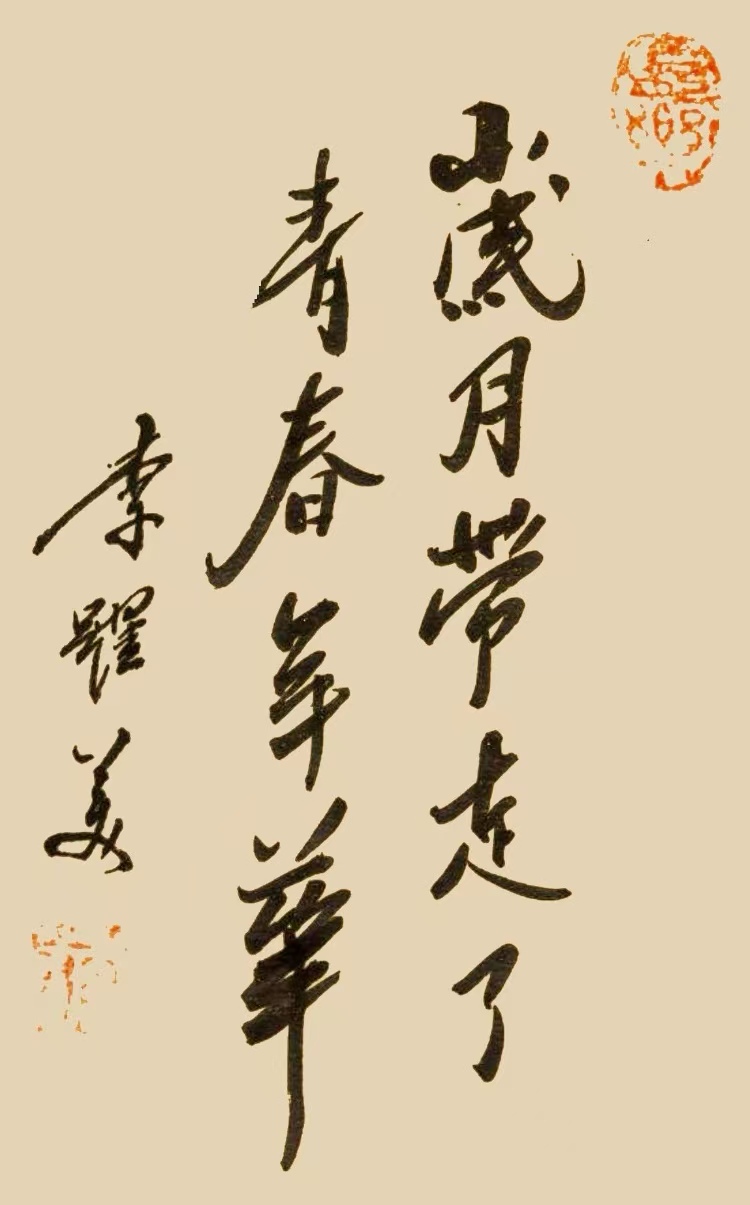 歲月带走了
青春年華
李躍美